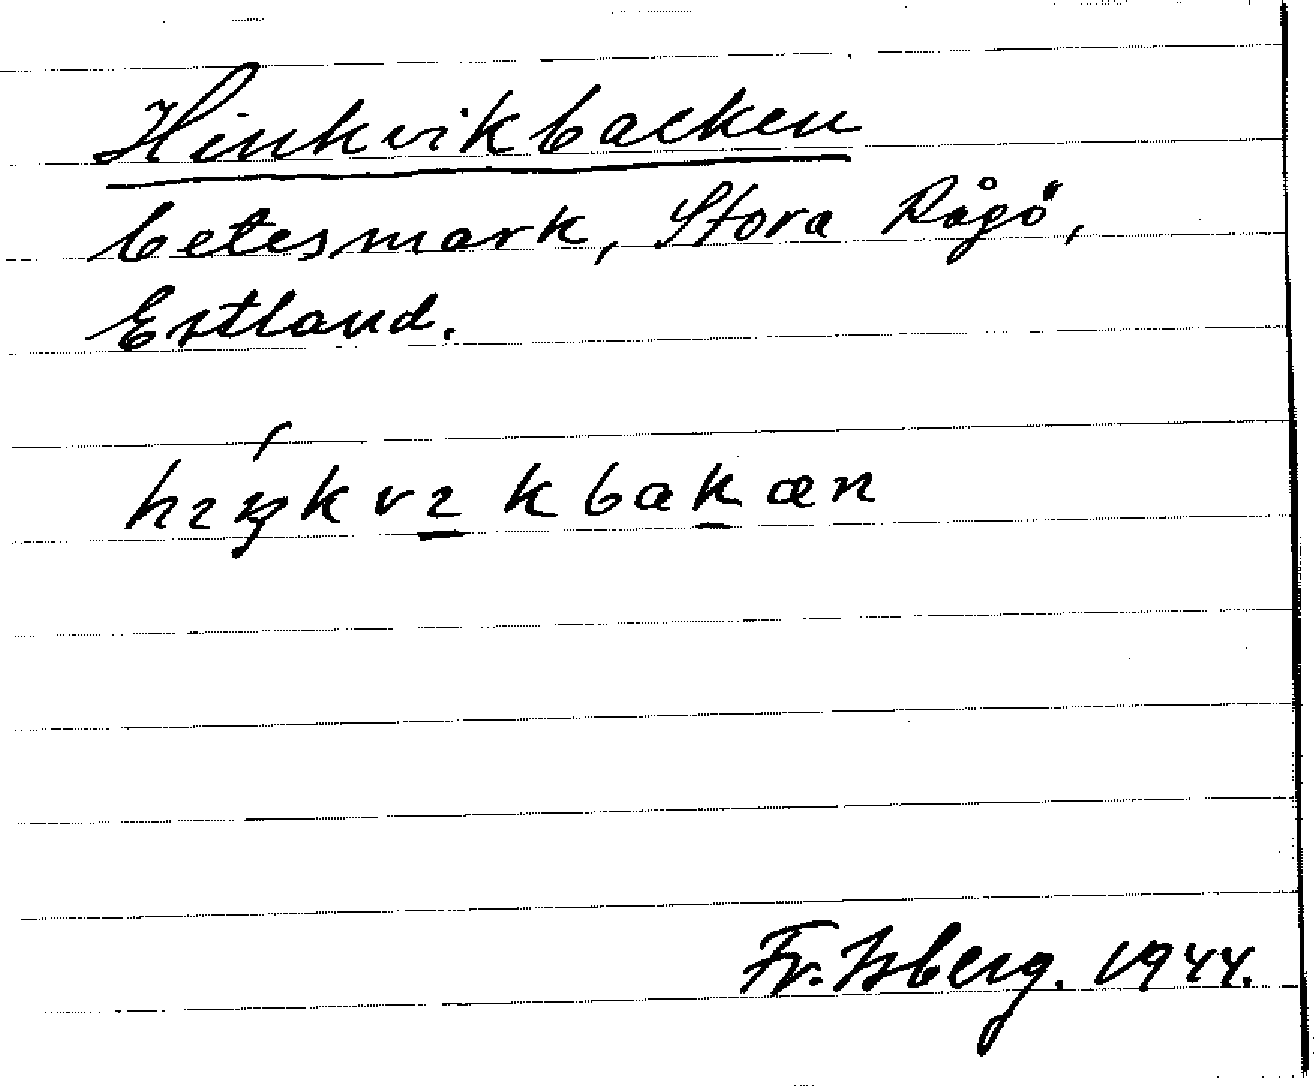 Hinkvikbacken
betesmark, Stora Rågö,
Estland.
hıŋkvı̱kbaḵæn
Fr. Isberg. 1944.